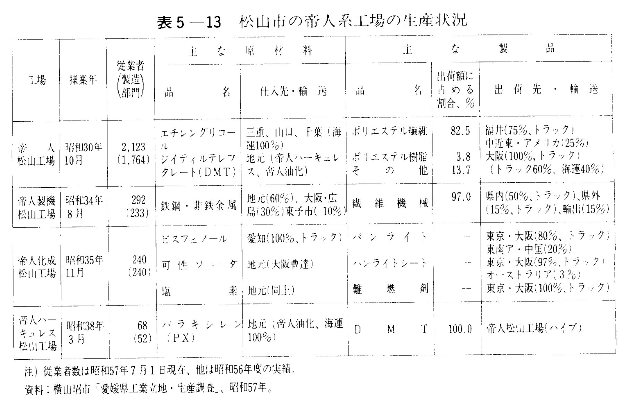 表5－13 松山市の帝人系工場の生産状況
工場 操業年 従業者(製造)部門 主な原材料 主な製品
品名 仕入先・輸送 品名 出荷額に占める割合、% 出荷先・輸送
帝人松山工場 昭和30年10月 2,123 (1,764)
エチレングリコール 三重、山口、千葉(海運100%) ポリエステル繊維 82.5 福井(75%、トラック)
中近東・アメリカ(25%)
ジメイテルテレフタレート(DMT) 地元(帝人ハーキュレス、帝人油化) ポリエステル樹脂 3.8 大阪(100%、トラック)
その他 13.7 (トラック60%、海運40%)
帝人製機松山工場 昭和34年8月 292 (233) 鉄鋼・非鉄金属 地元(60%)、大阪・広島(30%)東予市(10%) 繊維機械 97.0 県内(50%、トラック)、県外(15%、トラック)、輸出(15%)
帝人化成松山工場 昭和35年11月 240 (240)
ビスフェノール 愛知(100%、トラック) パンライト － 東京・大阪(80%、トラック)
東南ア・中国(20%)
可性ソーダ 地元(大阪曹達) パンライトシート － 東京・大阪(97%、トラック)
オーストラリア(3%)
塩素 地元(同上) 難燃剤 － 東京・大阪(100%、トラック)
帝人ハーキュレス松山工場 昭和38年3月 68 (52) パラキシレン(PX) 地元(帝人油化、海運100%) DMT 100.0 帝人松山工場(パイプ)
注)従業者数は昭和57年7月1日現在、他は昭和56年度の実績。
資料：横山昭市「愛媛県工業立地・生産調査」、昭和57年。